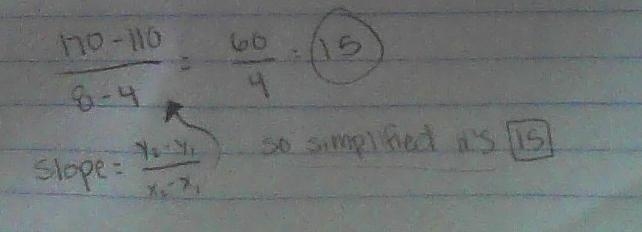 170-110 / 8-4 = 60 / 4 = 15
slope = y₂-y₁ / x₂-x₁ so simplified it's 15